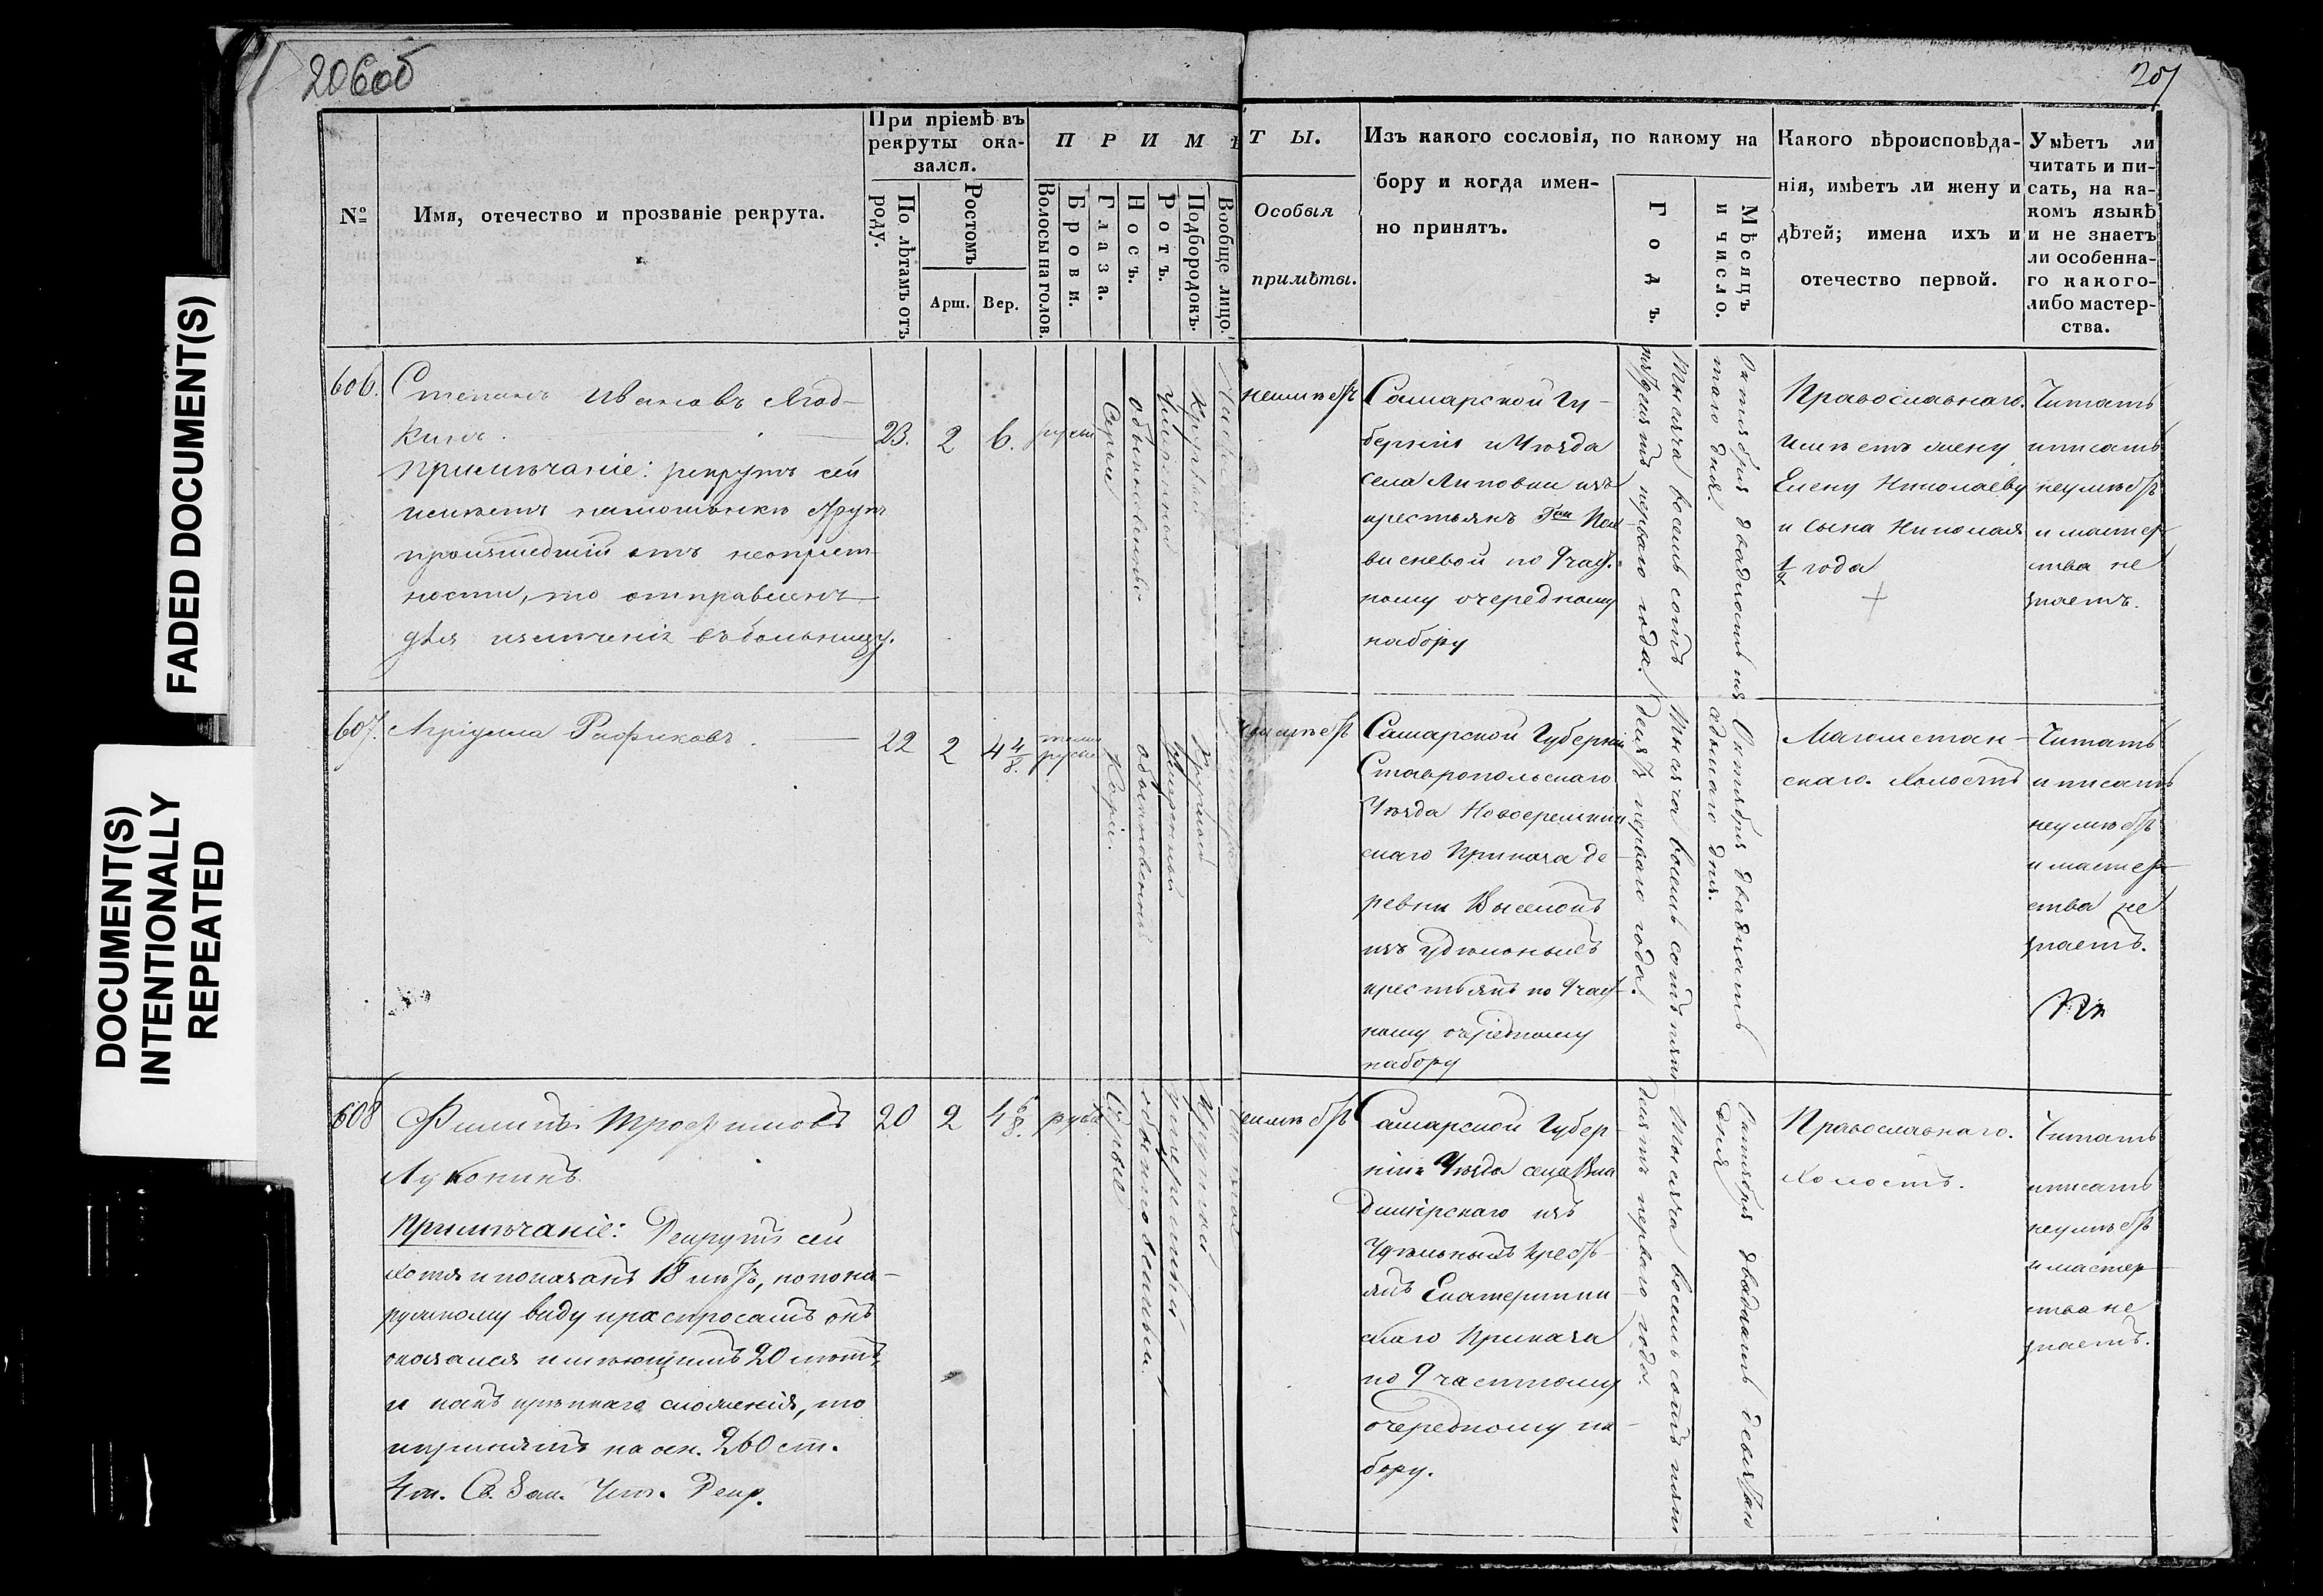 206об
207
FADED DOCUMENT(S)
DOCUMENT(S)
INTENTIONALLY
REPEATED
№
Имя, отечество и прозваніе рекрута.
При пріемѣ въ
рекруты ока-
зался.
По лѣтамъ отъ
роду.
Ростомъ
Арш.
Вер.
П Р И М Ѣ
Волосы на голов.
Брови.
Глаза.
Носъ.
Ротъ.
Подбородокъ.
Вообще лицо.
Т Ы.
Особыя
примѣты.
Изъ какого сословія, по какому на
бору и когда имен-
но принятъ.
Годъ.
Мѣсяцъ
и число.
Какого вѣроисповѣда-
нія, имѣетъ ли жену и
дѣтей; имена ихъ и
отечество первой.
Умѣетъ ли
читать и пи-
сать, на ка-
комъ языкѣ
и не знаетъ
ли особенна-
го какого-
либо мастер-
ства.
606.
Степанъ Ивановъ Ягод-
кинъ.
Примѣчаніе: рекрутъ сей
имѣетъ
происшедшій отъ неопрят
ности, то отправленъ
для излеченія въ больницу.
23.
2
6.
русые
Серые
обыкновенный
умеренный
Круглый
неимѣетъ
Самарской Гу-
берніи и Уѣзда
села Липовки изъ
крестьянъ Гжи
по 9 част.
ному очередному
набору
Тысяча восемь сотъ
пятдесятъ перваго года
Октября двадцать
таго дня
Православнаго.
Имѣетъ жену
Елену Николаеву
и сына Николая
½ года
Читать
и писать
неумѣетъ
и мастер
ства не
знаетъ.
607.
Рафиковъ.
22
2
4 4/8.
темно
русые
Каріи.
обыкновенный
умеренный
Круглый
неимѣетъ
Самарской Губерніи
Ставропольскаго
Уѣзда
скаго Приказа де-
ревни Выселокъ
изъ удѣльныхъ
крестьянъ по 9 част-
ному очередному
набору
Тысяча восемь сотъ пять
десятъ перваго года.
Октября двадцать
дня.
Магометан-
скаго. Холостъ
Читать
и писать
неумѣетъ
и мастер-
ства не
знаетъ.
608
Филипъ Трофимовъ
Луконинъ.
Примѣчаніе: Рекрутъ сей
хотя и показанъ 18 лѣтъ, но по на-
ружному виду и распросамъ онъ
оказался имѣющимъ 20 лѣтъ,
и какъ крѣпкаго сложенія, то
и принятъ на осн. 260 ст.
4 т. Св. Зак. Уст. Рекр.
20
2
4 6/8.
русые
Серые
обыкновенный
умеренный
Круглый
неимѣетъ
Самарской Губер-
ніи Уѣзда села Вла
димірскаго изъ
Удѣльныхъ Крестъ-
янъ Екатеринин
скаго Приказа
по 9 частному
очередному на-
бору.
Тысяча восемь сотъ пять
десятъ перваго года.
Октября двадцать девятаго
дня
Православнаго.
Холостъ.
Читать
и писать
неумѣетъ
и мастер
ства не
знаетъ.